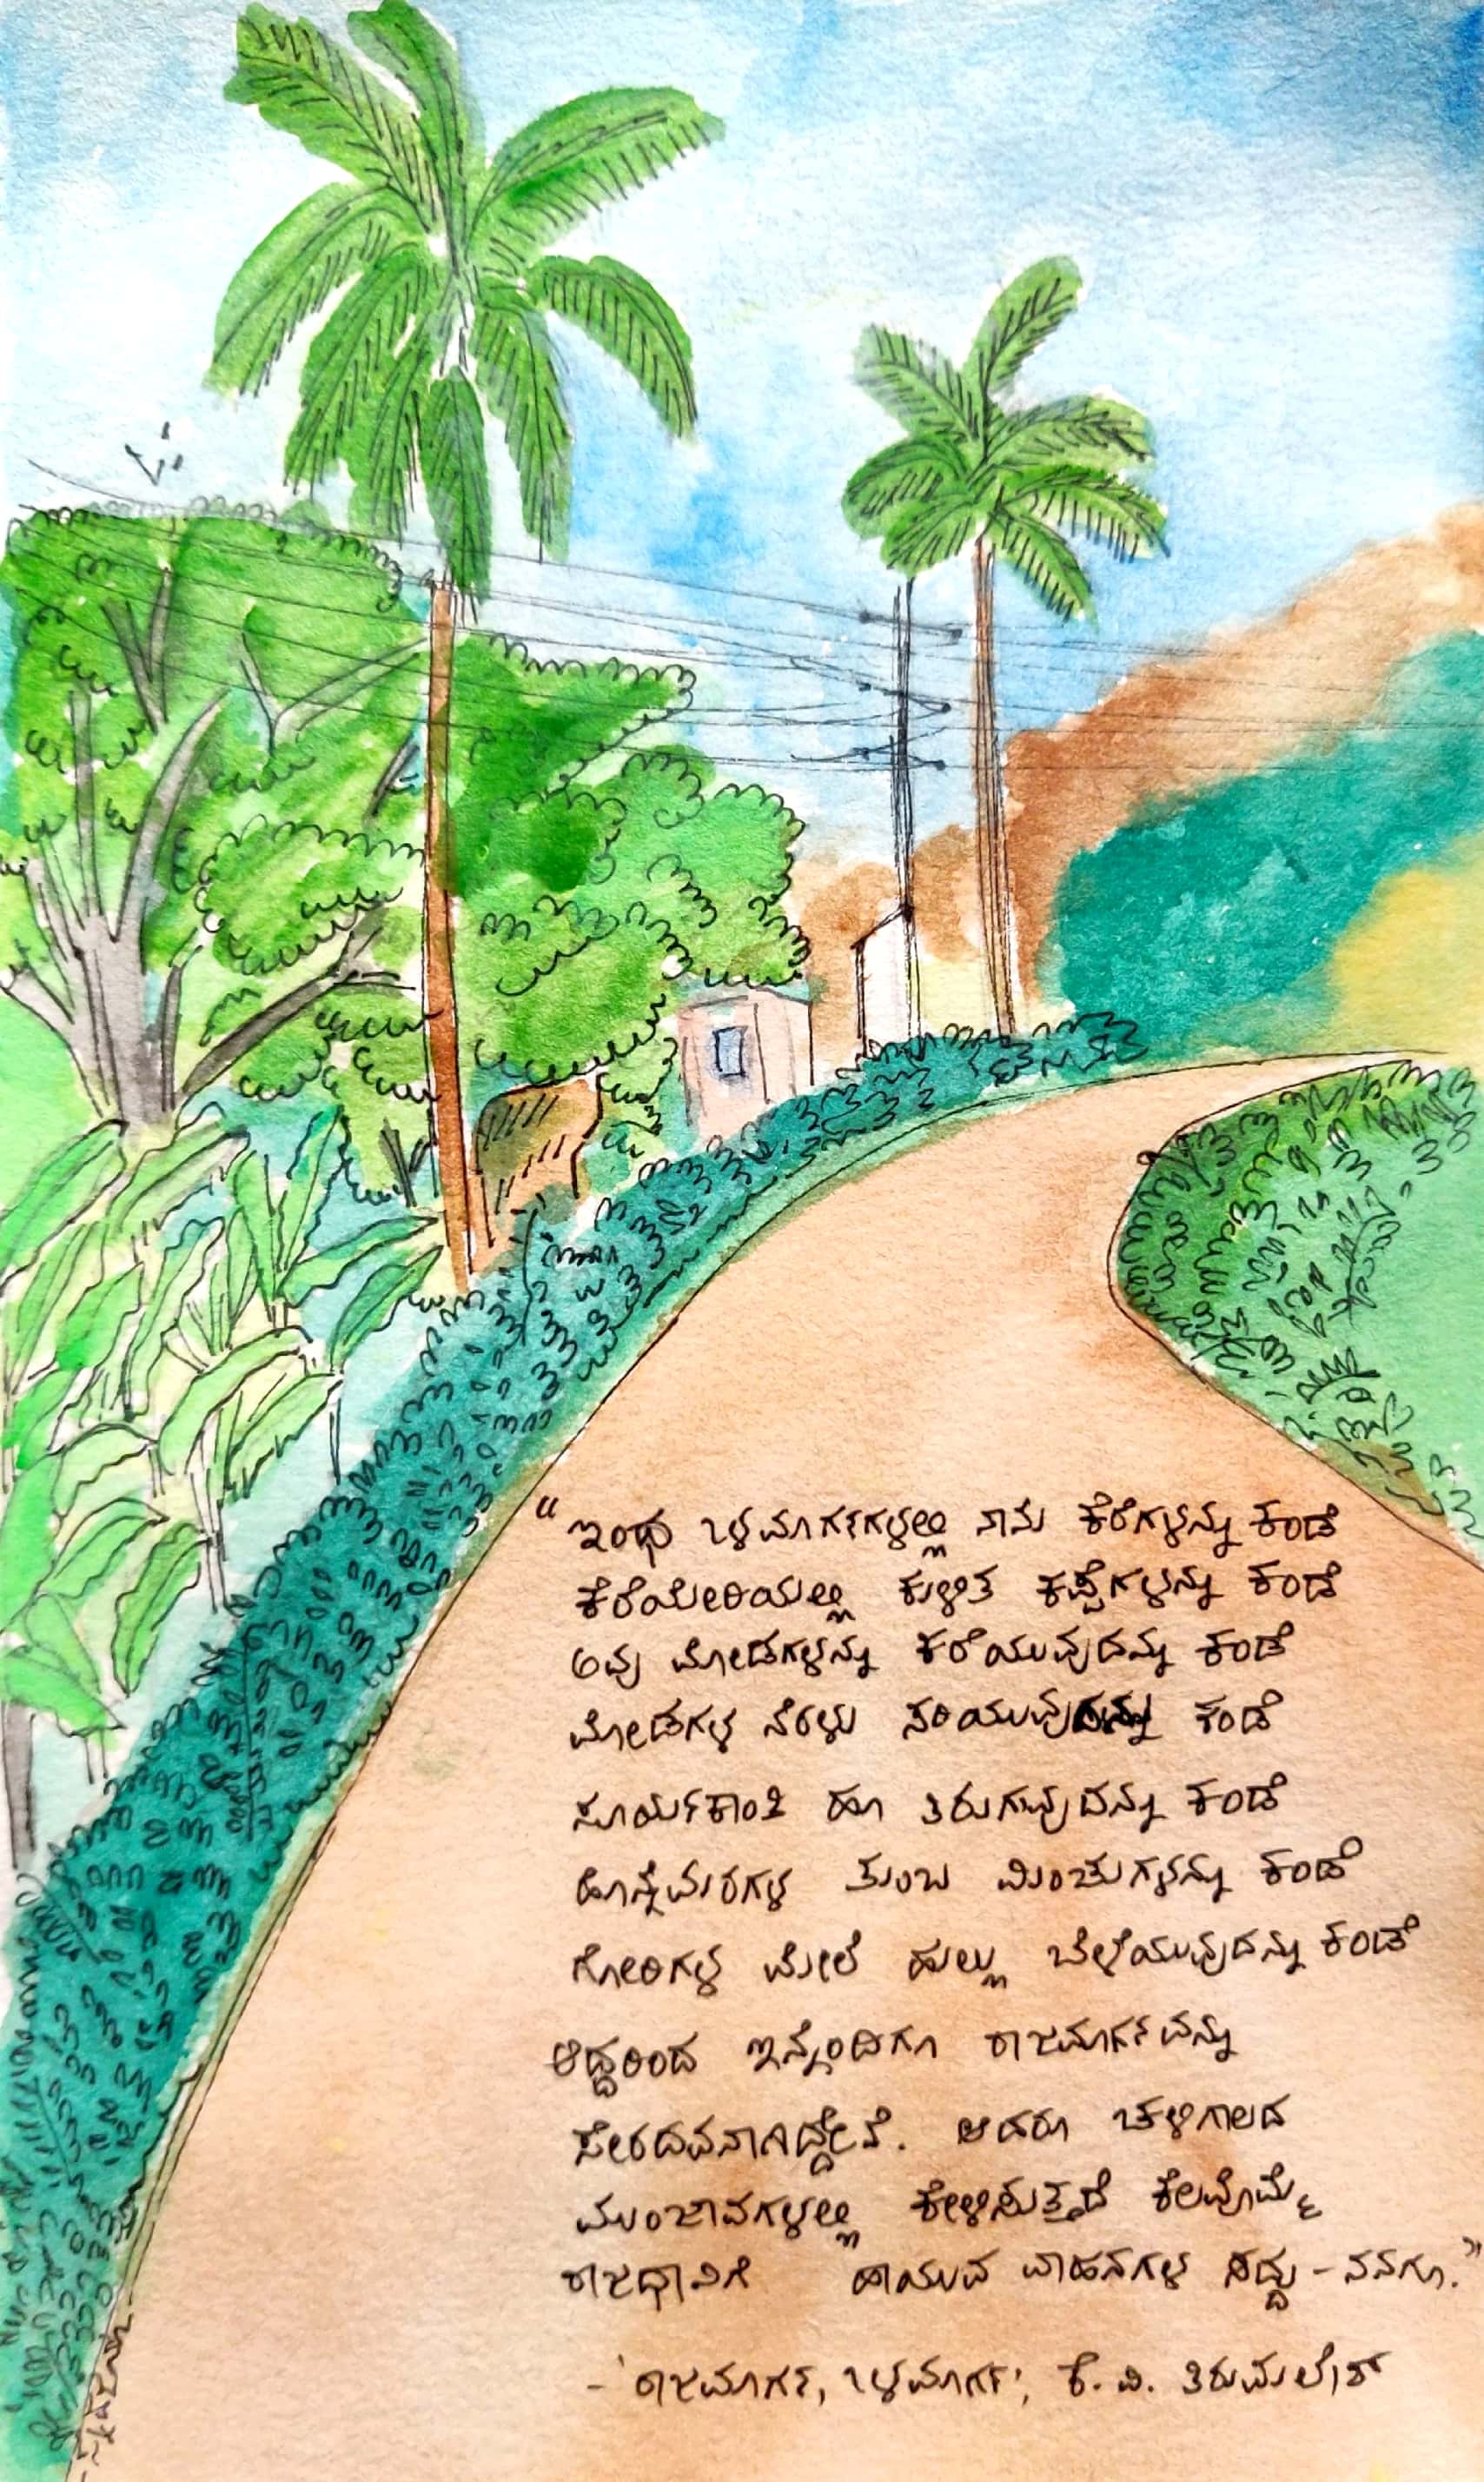 “ಇಂಥ ಒಳಮಾರ್ಗಗಳಲ್ಲಿ ನಾನು ಕೆರೆಗಳನ್ನು ಕಂಡೆ
ಕೆರೆಯೇರಿಯಲ್ಲಿ ಕುಳಿತ ಕಪ್ಪೆಗಳನ್ನು ಕಂಡೆ
ಅವು ಮೋಡಗಳನ್ನು ಕರೆಯುವುದನ್ನು ಕಂಡೆ
ಮೋಡಗಳ ನೆರಳು ಸರಿಯುವುದನ್ನು ಕಂಡೆ
ಸೂರ್ಯಕಾಂತಿ ಹೂ ತಿರುಗುವುದನ್ನು ಕಂಡೆ
ಹೊನ್ನೆಮರಗಳ ತುಂಬ ಮಿಂಚುಗಳನ್ನು ಕಂಡೆ
ಗೋರಿಗಳ ಮೇಲೆ ಹುಲ್ಲು ಬೆಳೆಯುವುದನ್ನು ಕಂಡೆ
ಆದ್ದರಿಂದ ಇನ್ನೆಂದಿಗೂ ರಾಜಮಾರ್ಗವನ್ನು
ಸೇರದವನಾಗಿದ್ದೇನೆ. ಆದರೂ ಚಳಿಗಾಲದ
ಮುಂಜಾವಗಳಲ್ಲಿ ಕೇಳಿಸುತ್ತದೆ ಕೆಲವೊಮ್ಮೆ
ರಾಜಧಾನಿಗೆ ಹಾಯುವ ವಾಹನಗಳ ಸದ್ದು – ನನಗೂ.”
- ‘ರಾಜಮಾರ್ಗ, ಒಳಮಾರ್ಗ’, ಕೆ. ವಿ. ತಿರುಮಲೇಶ್